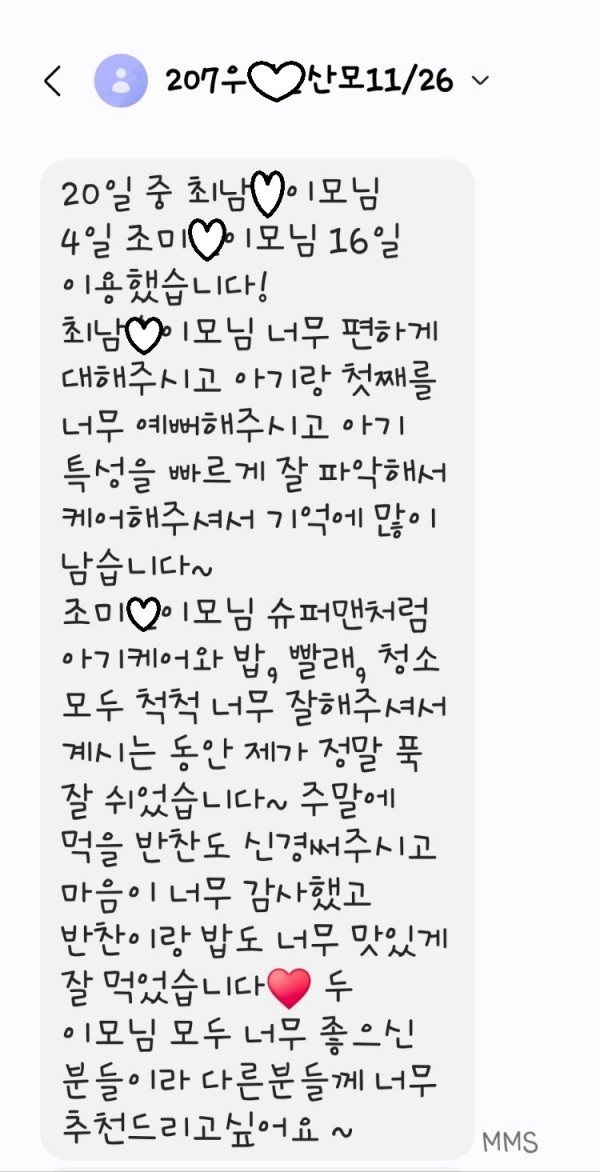 207우 산모11/26
20일 중 최남 이모님
4일 조미 이모님 16일
이용했습니다!
최남 이모님 너무 편하게
대해주시고 아기랑 첫째를
너무 예뻐해주시고 아기
특성을 빠르게 잘 파악해서
케어해주셔서 기억에 많이
남습니다~
조미 이모님 슈퍼맨처럼
아기케어와 밥, 빨래, 청소
모두 척척 너무 잘해주셔서
계시는 동안 제가 정말 푹
잘 쉬었습니다~ 주말에
먹을 반찬도 신경써주시고
마음이 너무 감사했고
반찬이랑 밥도 너무 맛있게
잘 먹었습니다❤️ 두
이모님 모두 너무 좋으신
분들이라 다른분들께 너무
추천드리고싶어요 ~
MMS